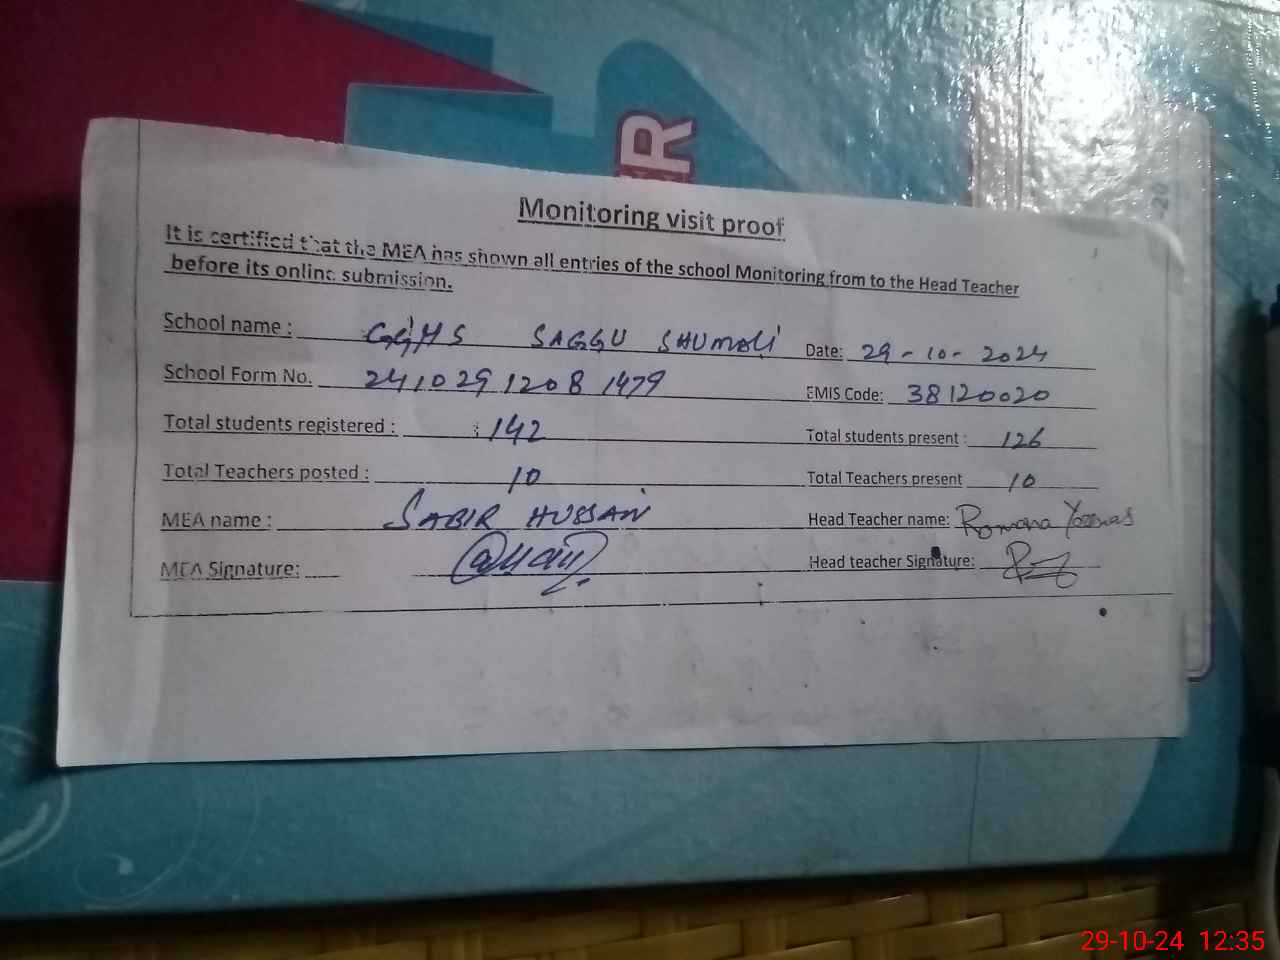 R
Monitoring visit proof
It is certified that the MEA has shown all entries of the school Monitoring from to the Head Teacher
before its online submission.
School name : GGHS SAGGU SHUMALI Date: 29-10-2024
School Form No. 241029 1208 1479 EMIS Code: 38120020
Total students registered : 142 Total students present : 126
Total Teachers posted : 10 Total Teachers present 10
MEA name : SABIR HUSSAIN Head Teacher name: Romana
MEA Signature: Head teacher Signature:
29-10-24 12:35